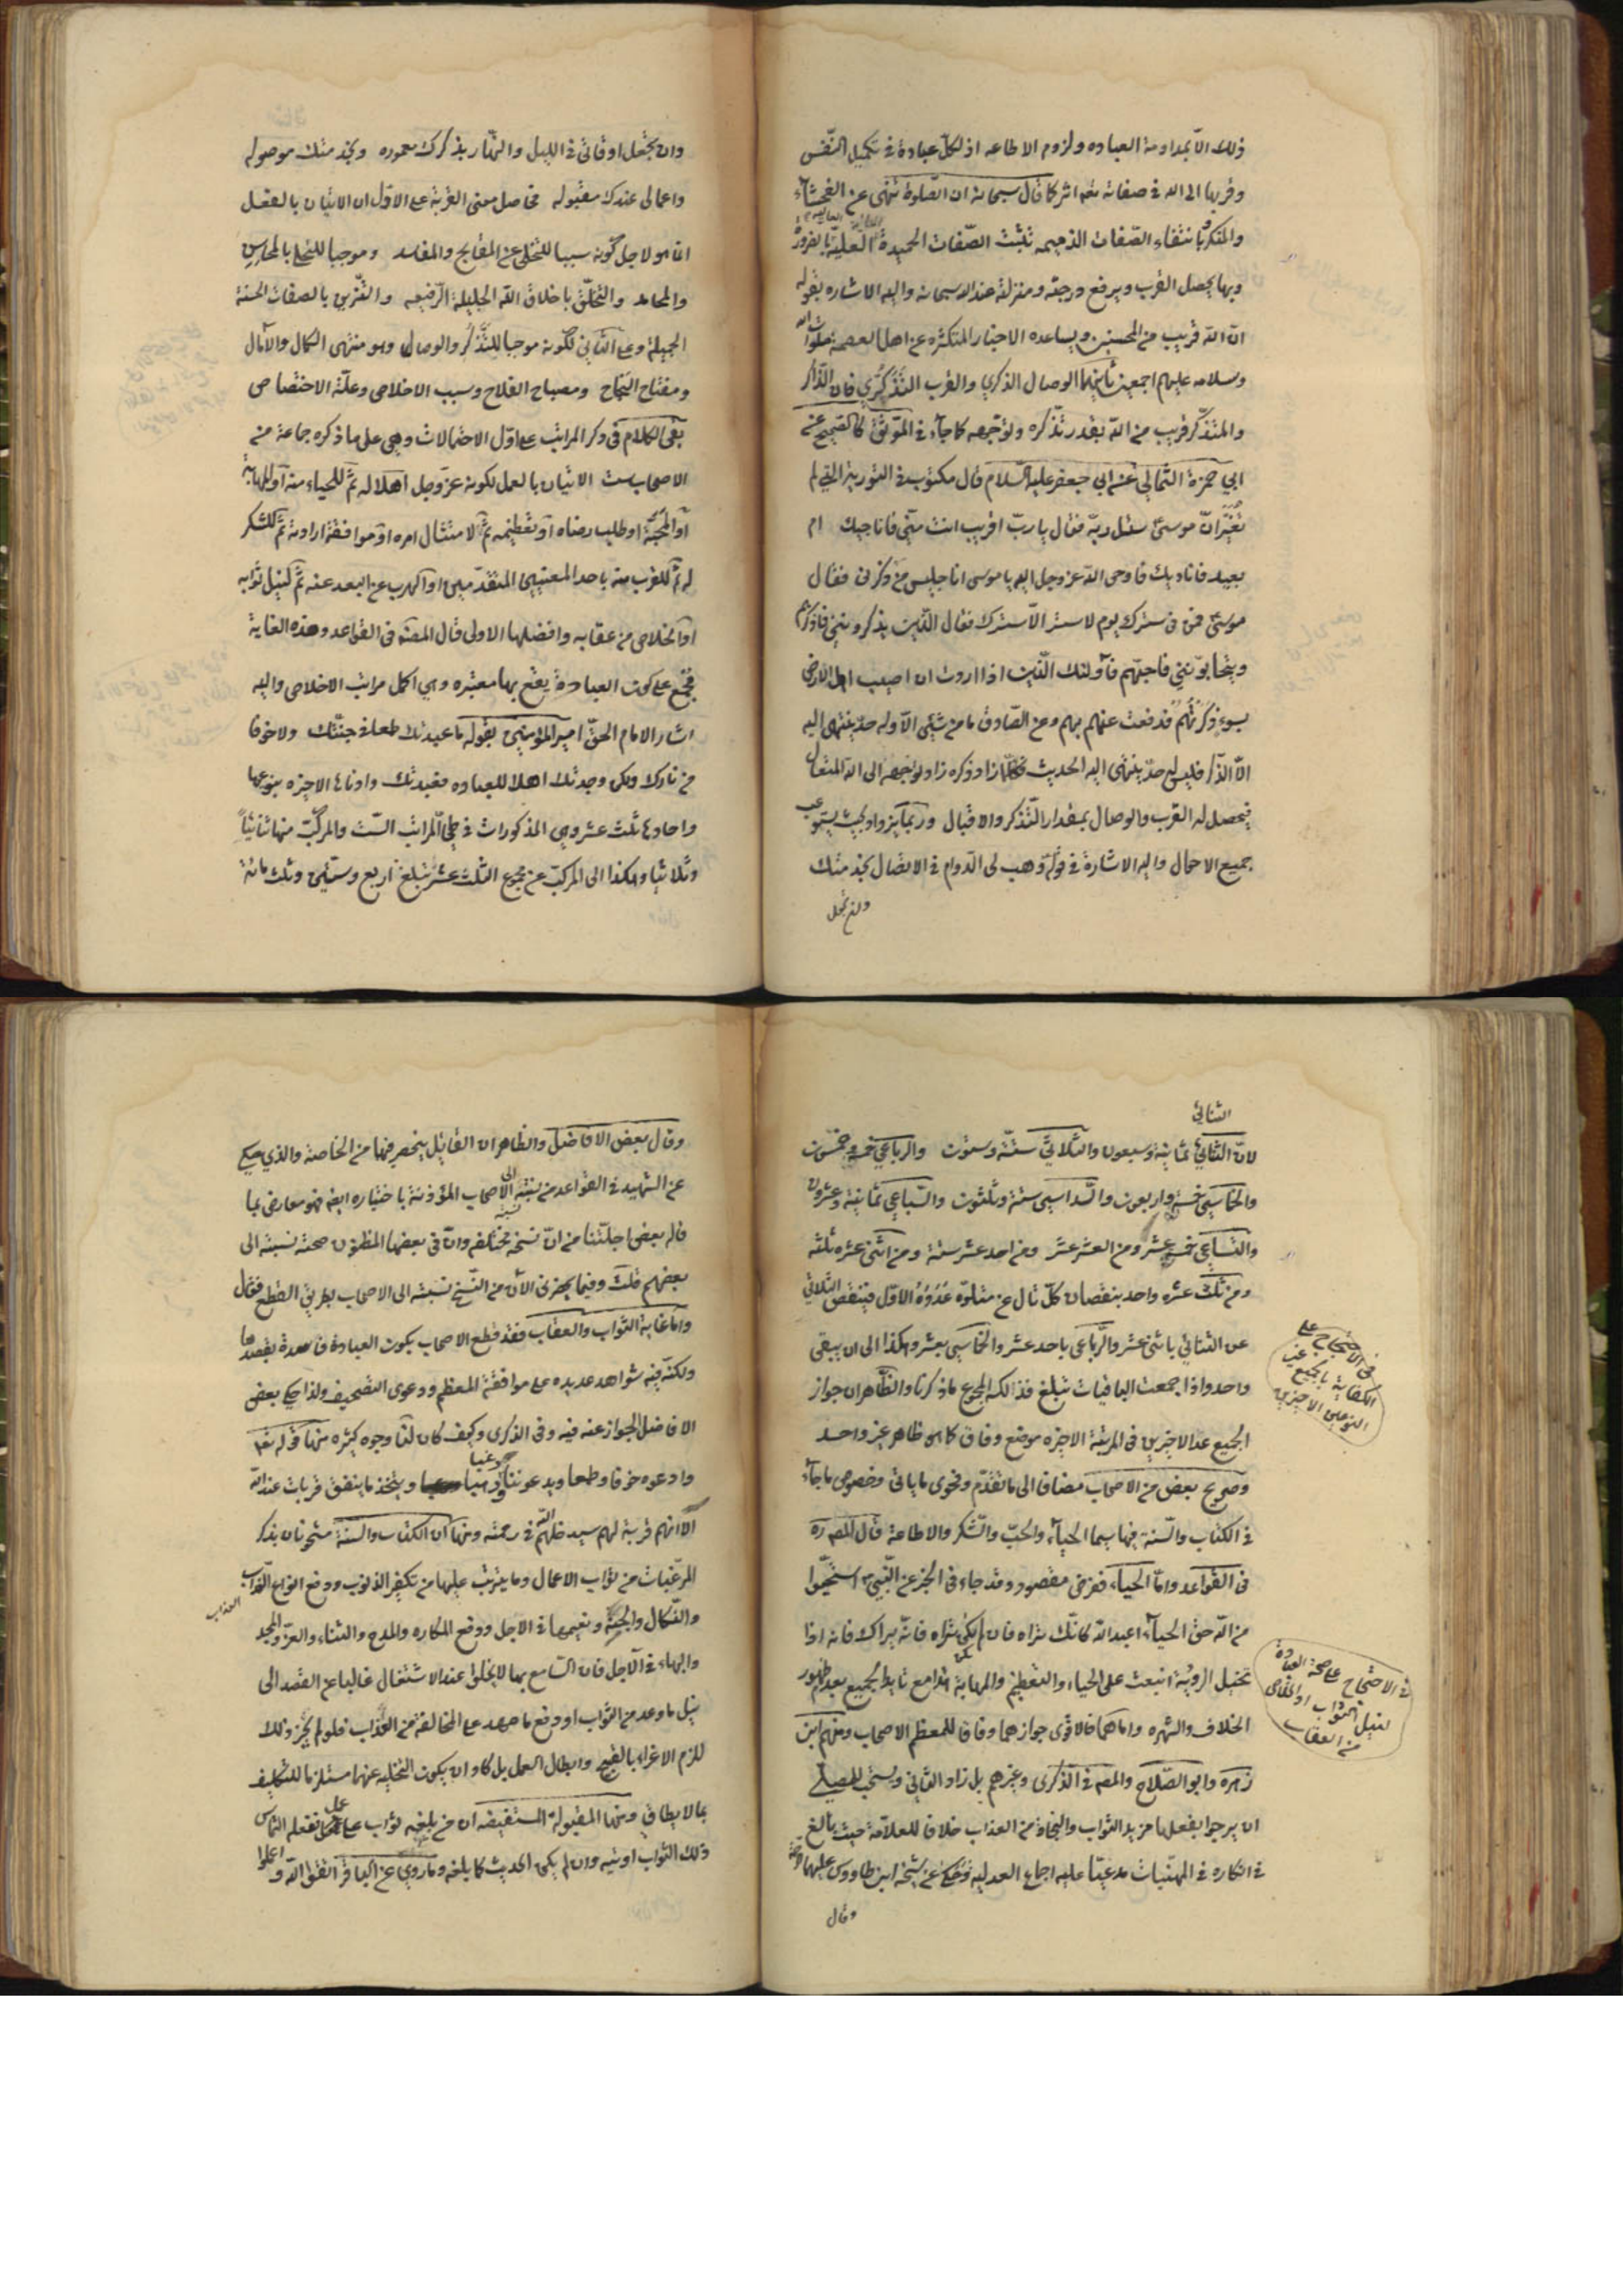 ذلك الا بمداومة العباده ولزوم الاطاعه اذ لكل عبادة في تكميل النّفس
وقربها الى الله في صفاته تعه اثر كما قال سبحانه ان الصّلوة تنهى عن الفحشآء
والمنكر وبانتفاء الصّفات الذميمه تثبت الصّفات الحميدة العليّة بالضرورة
وبها يحصل القرب ويرفع درجته ومنزلته عند الله سبحانه واليه الاشاره بقوله
انّ الله قريب من المحسنين ويساعده الاخبار المتكثره عن اهل العصمة صلوات الله
وسلامه عليهم اجمعين ثانيهما الوصال الذكري والقرب التذكّري فان الذّاكر
والمتذكّر قريب من الله بقدر تذكّره وتوجّهه كما جآء في الموثق كالصحيح عن
ابي حمزة الثمالي عن ابي جعفر عليه السّلام قال مكتوب في التورية التي لم
تغيّر انّ موسى سئل ربّه فقال يا ربّ اقريب انت منّي فاناجيك ام
بعيد فاناديك فاوحى الله عز وجل اليه يا موسى انا جليس من ذكرني فقال
موسى فمن في سترك يوم لا ستر الّا سترك فقال الذّين يذكرونني فاذكرهم
ويتحابّونني فاحبّهم فآولئك الّذين اذا اردت ان اصيب اهل الارض
بسوء ذكرتهم فدفعت عنهم بهم وعن الصّادق ما من شيئ الّا وله حدّ ينتهى اليه
الّا الذّكر فليس له حدّ ينتهى اليه الحديث فكلّما زاد ذكره زاد توجّهه الى الله المتعال
فيحصل له القرب والوصال بمقدار التّذكر والاقبال وربّما يزداد بحيث يستوعب
جميع الاحوال واليه الاشارة في قوله وهب لى الدّوام في الاتصال بخدمتك
وان تجعل
وان تجعل اوقاتي في الليل والنهار بذكرك معموره وبخدمتك موصوله
واعمالى عندك مقبوله فحاصل معنى القربة على الاوّل ان الاتيان بالفعل
انما هو لاجل كونه سببا للتخلى عن المقابح والمفاسد وموجبا للتحلى بالمحاسن
والمحامد والتخلّق باخلاق الله الجليلة الرّفيعه والتّزين بالصفات الحسنة
الجميلة وعلى الثاني لكونه موجبا للتّذكر والوصال وهو منتهى الكمال والآمال
ومفتاح النجاح ومصباح الفلاح وسبب الاخلاص وعلّة الاختصاص
بقى الكلام في ذكر المراتب على اوّل الاحتمالات وهي على ما ذكره جماعة من
الاصحاب ست الاتيان بالعمل لكونه عزّ وجل اهلا له ثمّ للحياء منه آو للمهابة
آو المحبّة او طلب رضاه آو تعظيمه ثمّ لامتثال امره او موافقة ارادته ثمّ للشكر
له ثمّ للقرب منه باحد المعنيين المتقدّمين او الهرب عن البعد عنه ثمّ لنيل ثوابه
اوالخلاص من عقابه وافضلها الاولى قال المصنّه في القواعد وهذه الغاية
مجمع على كون العبادة يقع بها معتبره وهي اكمل مراتب الاخلاص واليه
اشار الامام الحقّ امير المؤمنين بقوله ما عبدتك طمعا في جنّتك ولا خوفا
من نارك ولكن وجدتك اهلا للعباده فعبدتك وادناها الاخيره بنوعيها
واحادها ثلث عشر وهى المذكورات في طىّ المراتب السّت والمركّب منها ثنائيّاً
وثلاثيّا وهكذا الى المركب عن مجموع الثلث عشر تبلغ اربع وستين وثلث مائة
الثنائي
لانّ الثنائيّ ثمانية وسبعون والثلاثيّ ستّة وستون والرباعي خمسة وخمسون
والخماسي خمسة واربعون والسّداسي ستة وثلثون والسّباعي ثمانية وعشرون
والتساعي خمسة عشر ومن العشر عشر ومن احد عشر ستة ومن اثني عشره ثلثه
ومن ثلث عشره واحد بنقصان كلّ تال عن متلوّه عدوّه الاوّل فينقص الثلاثي
عن الثنائي باثنى عشر والرّباعى باحد عشر والخماسي بعشر وهكذا الى ان يبقى
واحد واذا جمعت الباقيات تبلغ فذالكه المجموع ما ذكرنا والظّاهر ان جواز
الجميع عدا الاخيرين في المرتبة الاخيره موضع وفاق كما هو ظاهر غير واحد
وصريح بعض من الاصحاب مضافا الى ما تقدّم وفحوى ما ياتي وخصوص ما جآء
في الكتاب والسّنة فيها سيما الحيآء والحبّ والشّكر والاطاعة قال المصنّف ره
في القواعد وامّا الحياء فغرض مقصود وقد جاء في الخبر عن النّبيّ استحيوا
من الله حقّ الحيآء اعبد الله كانّك تراه فان لم تكن تراه فانّه يراك فانه اذا
تخيل الرؤية انبعث على الحياء والتعظيم والمهابة هذا مع تايد الجميع بعدم ظهور
الخلاف والشهره واما هما فالاقوى جوازهما وفاقا للمعظم الاصحاب ومنهم ابن
زهره وابو الصّلاح والمصه في الذكرى وغيرهم بل زاد الثاني ويستحب للمصلّى
ان يرجوا بفعلها مزيد الثواب والنجاة من العذاب خلافا للعلاّمة حيث بالغ
في انكاره في المهنّيات مدعيّا عليه اجماع العدليه وحكى عن شيخه ابن طاووس عليهما الرحمة
وقال
في الاحتجاج على
الكفاية بالجميع غير
النوعين الاخيرين
في الاحتجاج على صحة العبادة
لنيل الثواب او الخلاص
من العقاب
وقال بعض الافاضل والظاهر ان القائل ينحصر فيهما من الخاصة والذي حكى
عن الشهيد في القواعد من نسبته الى الاصحاب المؤذنة باختياره ايضه فهو معارض بما
قاله بعض اجلّتنا من انّ نسخه مختلفه وانّ في بعضها المظنون صحته نسبته الى
بعضهم قلت وفيما يحضرنى الآن من النّسخ نسبته الى الاصحاب بطريق القطع فقال
وامّا غاية الثواب والعقاب فقد قطع الاصحاب بكون العبادة فاسدة بقصدها
ولكنّ فيه شواهد عديده على موافقة المعظم ودعوى التصحيف ولذا حكى بعض
الافاضل الجواز عنه فيه وفى الذكرى وكيف كان لنا وجوه كثيره منها قوله تعه
وادعوه خوفا وطمعا ويدعوننا رغبا ورهبا ويتّخذ ما ينفق قربات عند الله
الا انّهم قربة لهم سيدخلهم الله في رحمته ومنها ان الكتاب والسنة مشحونان بذكر
المرغبات من ثواب الاعمال وما يترتب عليها من تكفير الذنوب ودفع انواع العذاب
والنّكال والجنة ونعيمها في الاجل ودفع المكاره والمدح والثناء والعزّ والمجد
والبهاء في الآجل فان السّامع بها لا يخلوا عند الاشتغال غالبا عن القصد الى
نيل ما وعد من الثواب او دفع ما هدد على المخالفة من العذاب فلو لم يجز ذلك
للزم الاغراء بالقبيح وابطال العمل بل كاد ان يكون التخليه عنها مستلزما للتكليف
بما لا يطاق ومنها المقبولة المستفيضه ان من بلغه ثواب على عمل ففعله التماس
ذلك الثواب اوتيه وان لم يكن الحديث كما بلغه وما روي عن الباقر اتقوا الله واعملوا